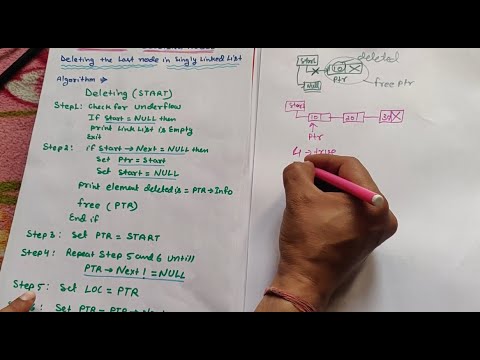 Deleting the Last node in Singly Linked List
Algorithm →
Deleting (START)
Step1: Check for underflow
If Start = NULL then
Print Link List is Empty
Exit
Step2: if Start → Next = NULL then
Set Ptr = Start
Set Start = NULL
Print element deleted is = PTR → Info
free (PTR)
End if
Step 3: Set PTR = START
Step4: Repeat Step 5 and 6 Untill
PTR → Next != NULL
Step 5: Set LOC = PTR
Set PTR = PTR →
Start
10
deleted
Ptr
free Ptr
Null
Start
10
20
30
Ptr
4 → true